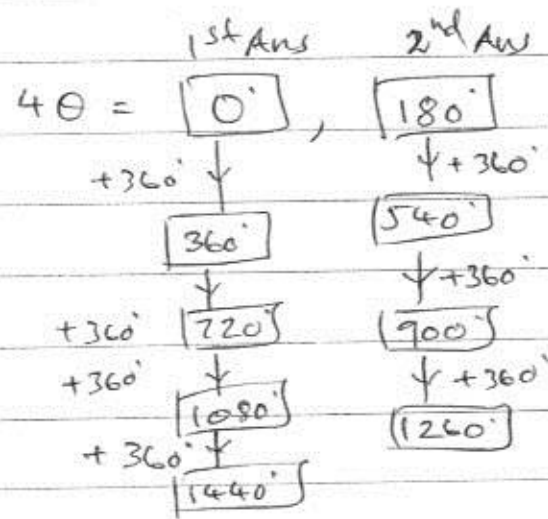 1st Ans 2nd Ans
4θ = 0°, 180°
+360° +360°
360° 540°
+360°
+360° 720° 900°
+360° +360°
1080° 1260°
+360°
1440°